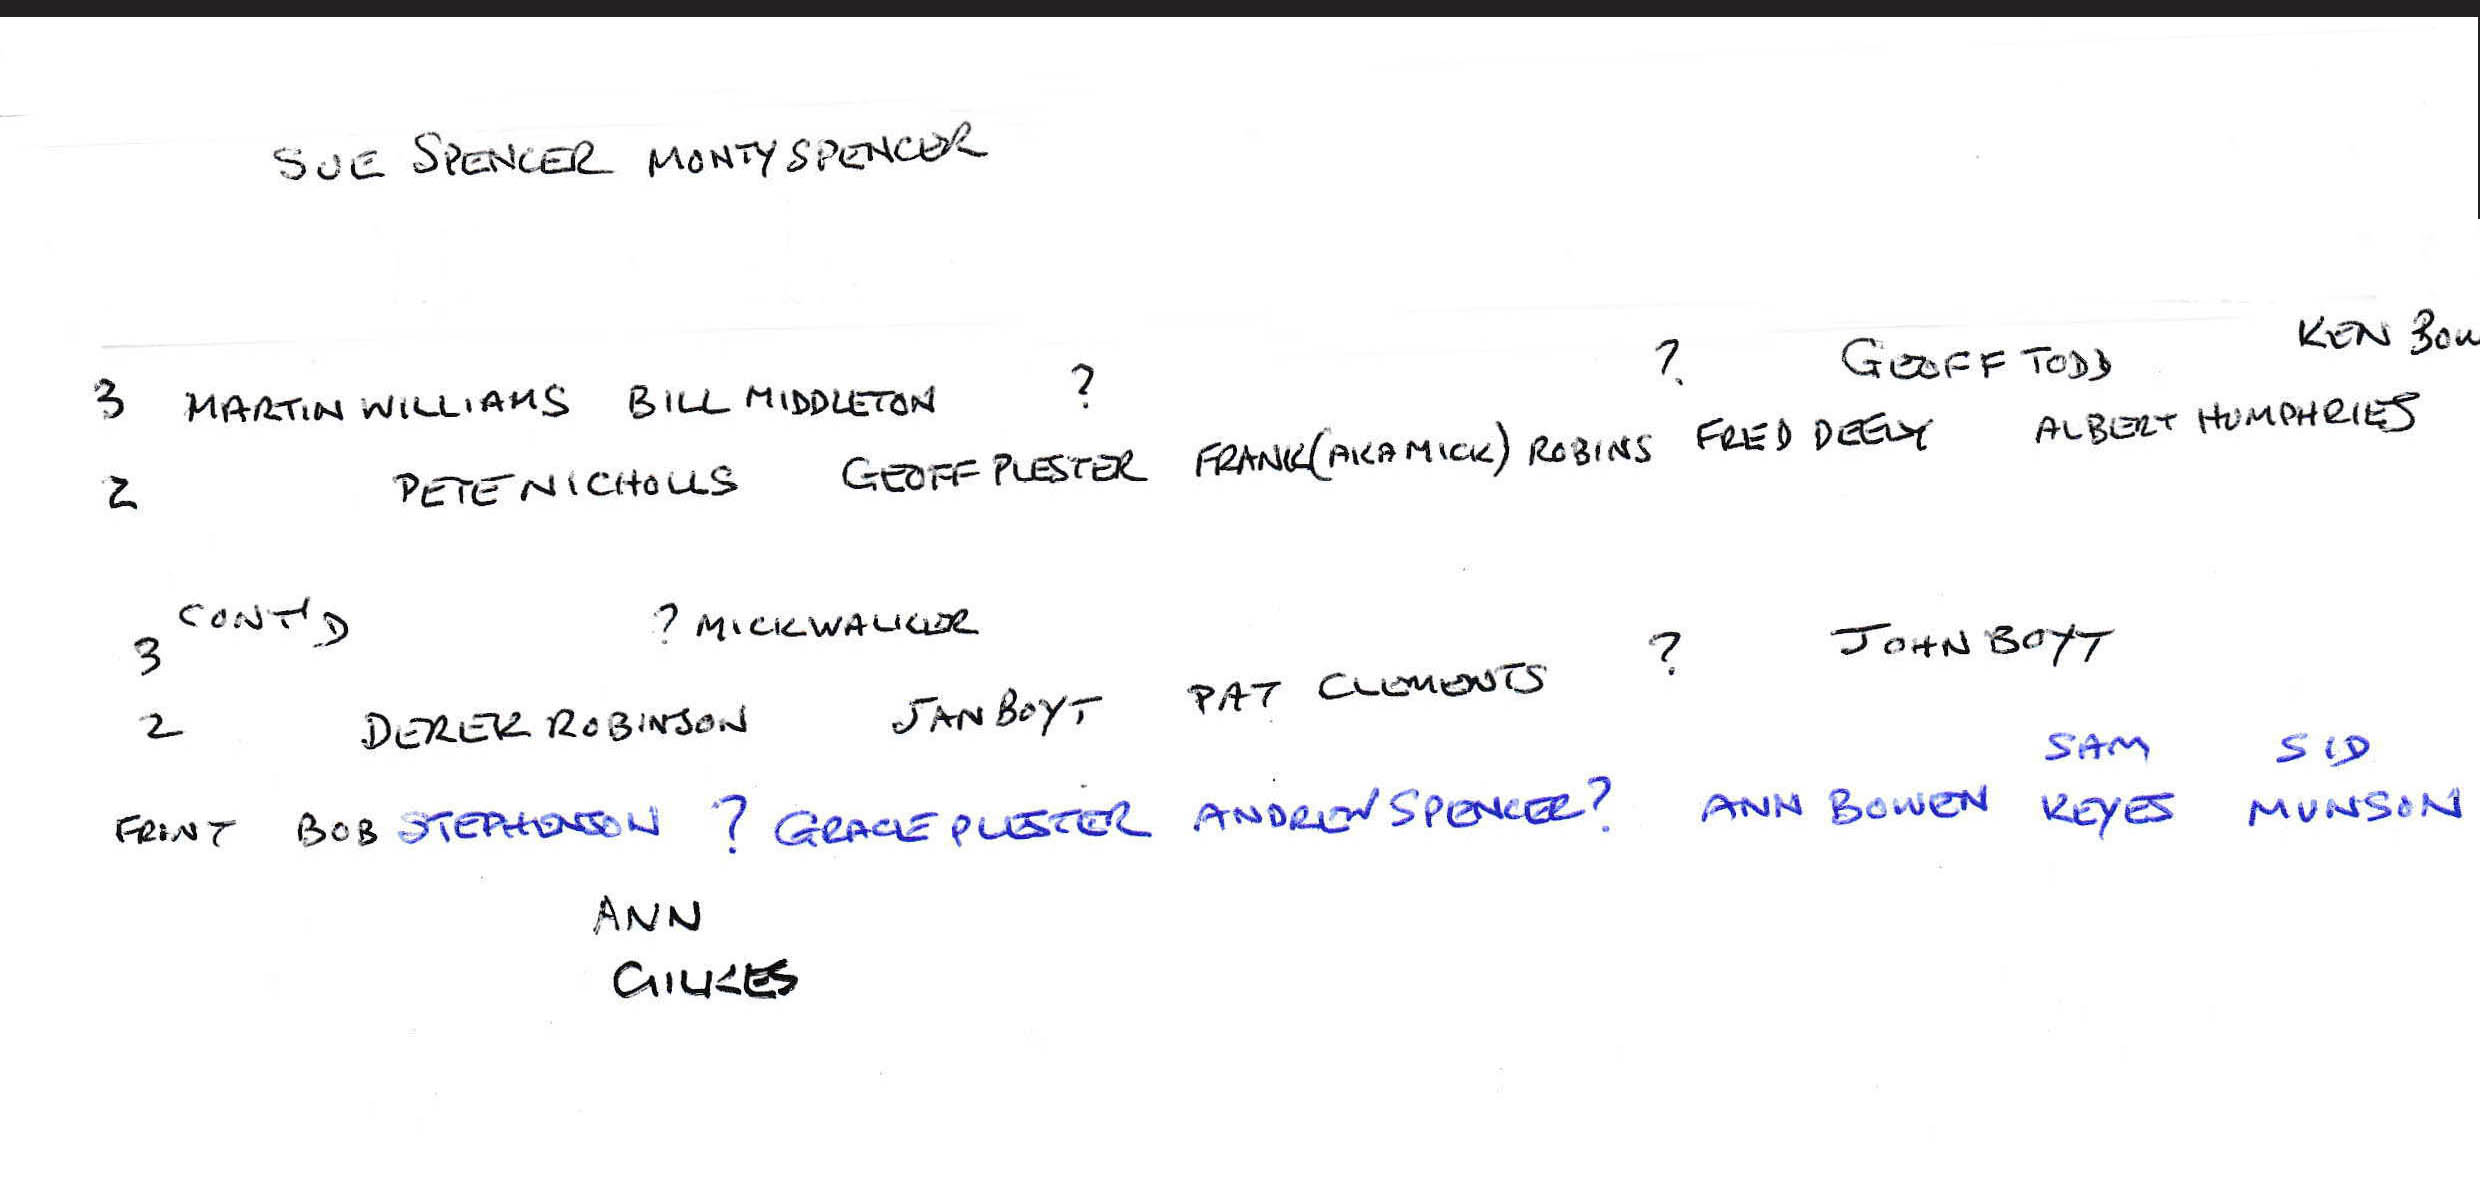 SUE SPENCER MONTY SPENCER
KEN
3 MARTIN WILLIAMS BILL MIDDLETON ? ? GEOFF TODD
2 PETE NICHOLLS GEOFF PLESTER FRANK (AKA MICK) ROBINS FRED DEELY ALBERT HUMPHRIES
3 CONT'D ? MICK WALKER ? JOHN BOYT
2 DEREK ROBINSON JAN BOYT PAT CLEMENTS
SAM SID
FRONT BOB STEPHENSON ? GRACE PLESTER ANDREW SPENCER? ANN BOWEN KEYES MUNSON
ANN
GILKES